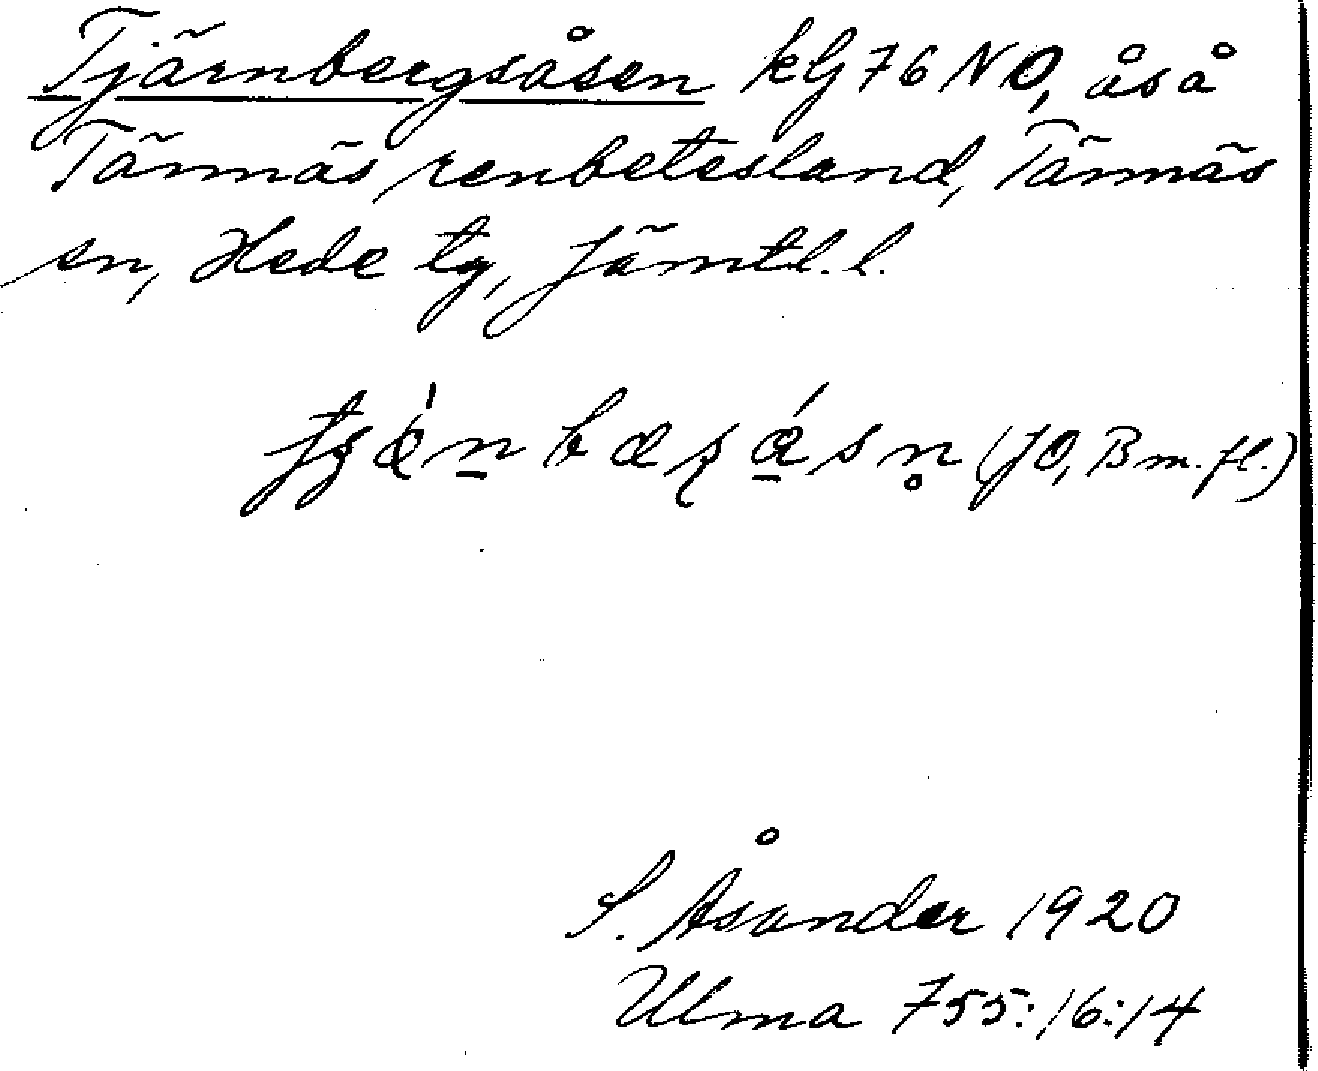 Tjärnbergsåsen kbl 76 NO, ås å
Tännäs renbetesland, Tännäs
sn, Hede tg, Jämtl. l.
(JO, B m. fl.)
S. Åsander 1920
Ulma 755:16:14